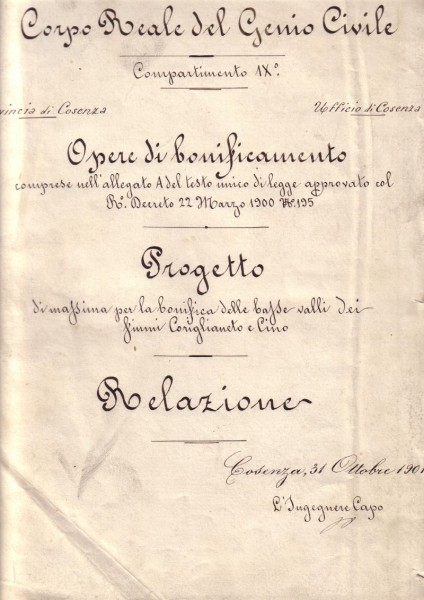 Corpo Reale del Genio Civile
Compartimento IX°.
vincia di Cosenza Ufficio di Cosenza
Opere di bonificamento
comprese nell'allegato A del testo unico di legge approvato col
R°. Decreto 22 Marzo 1900 N°. 195
Progetto
di massima per la bonifica delle basse valli dei
fiumi Coriglianeto e Cino
Relazione
Cosenza, 31 Ottobre 1901
L'Ingegnere Capo